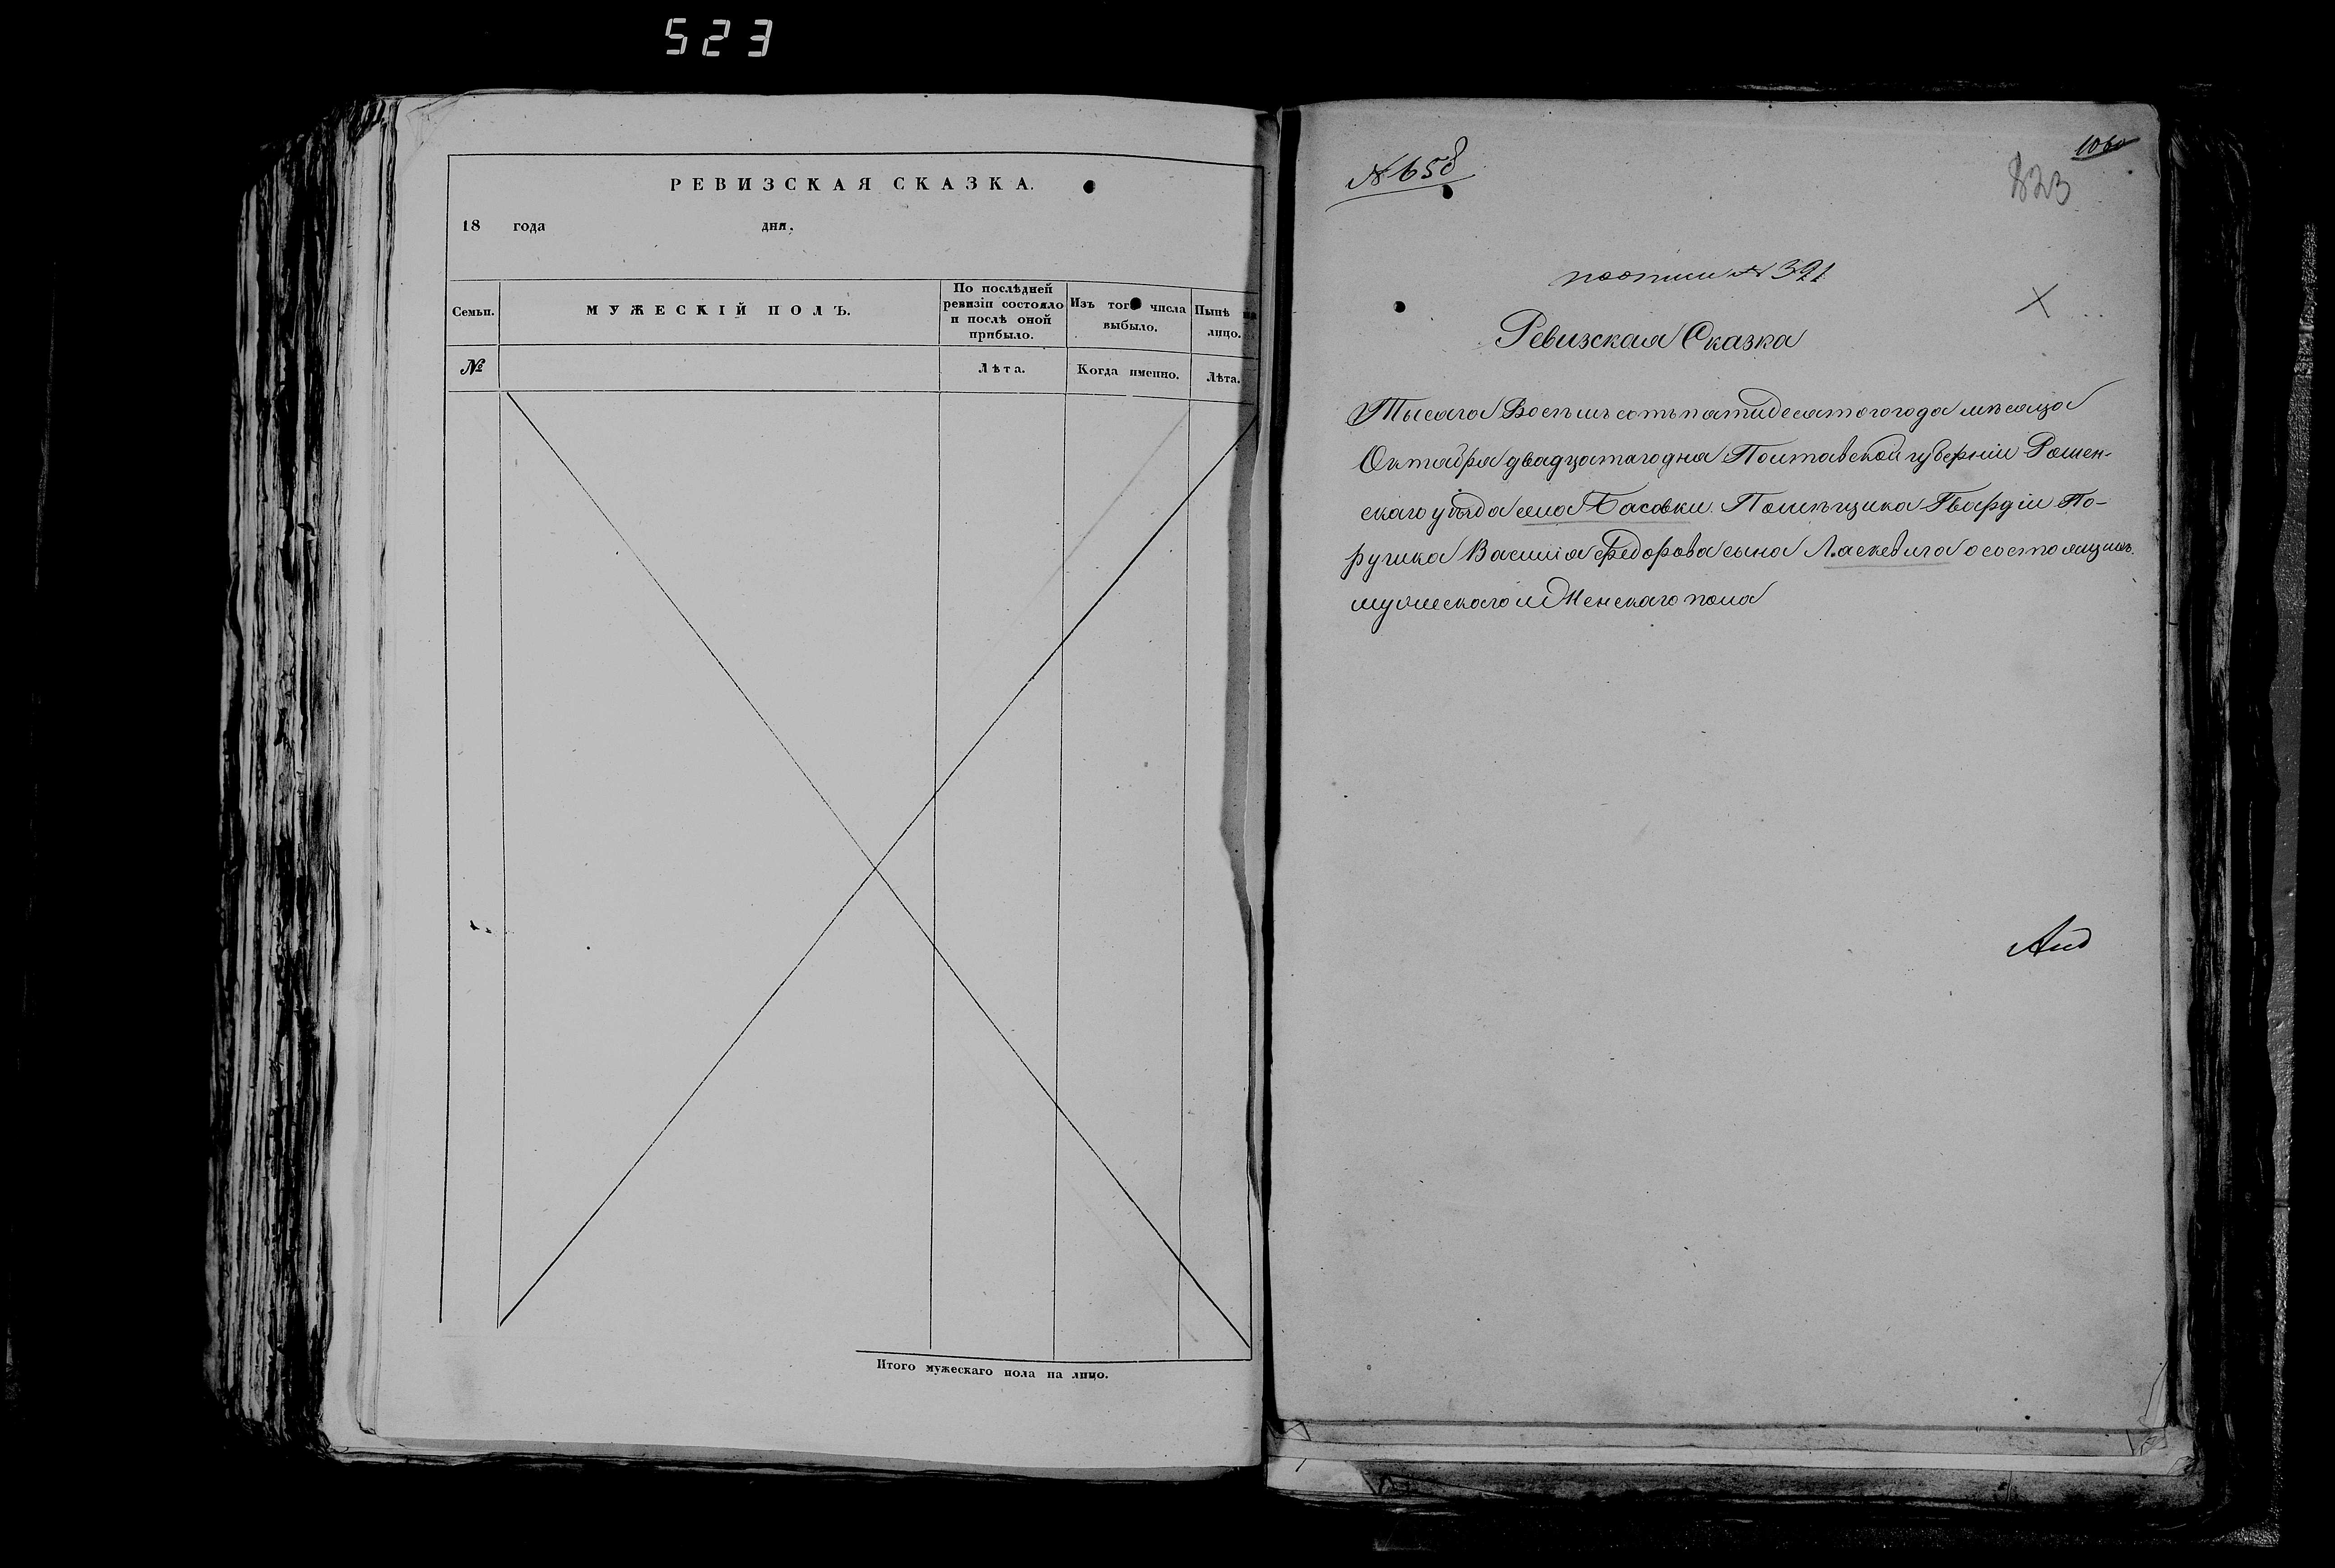 523
РЕВИЗСКАЯ СКАЗКА.
18 года дня.
Семьи.
МУЖЕСКІЙ ПОЛЪ.
По послѣдней ревизіи состояло и послѣ оной прибыло.
Изъ того числа выбыло.
Нынѣ на лицо.
№
Лѣта.
Когда именно.
Лѣта.
Итого мужескаго пола на лицо.
№ 658
1060
823
№ 391
Ревизская Сказка
Тысяча Восемь сотъ пятидесятого года мѣсяца
Октября двадцятаго дня Полтавской губерніи Ромен-
скаго уѣзда села Басовки Помѣщика Гвардіи По-
ручика Василія Федорова сына Ласкевича о состоящихъ
мужескаго и Женскаго пола